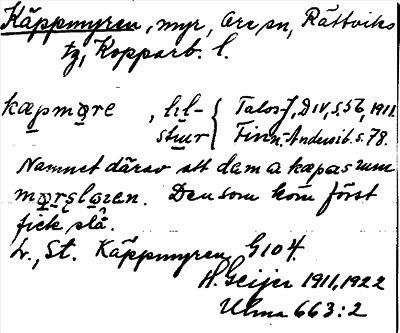 Käppmyren, myr, Ore sn, Rättviks
tg, Kopparb. l.
kæpmøre , lil- Talos-J, D IV, s. 56, 1911.
stur Finn-Andersib. s. 78.
Namnet därav att dem a kæpas um
mørsløren. Den som kom först
fick slå.
L., St. Käppmyren, G 104.
H. Geijer 1911, 1922
Ulma 663:2